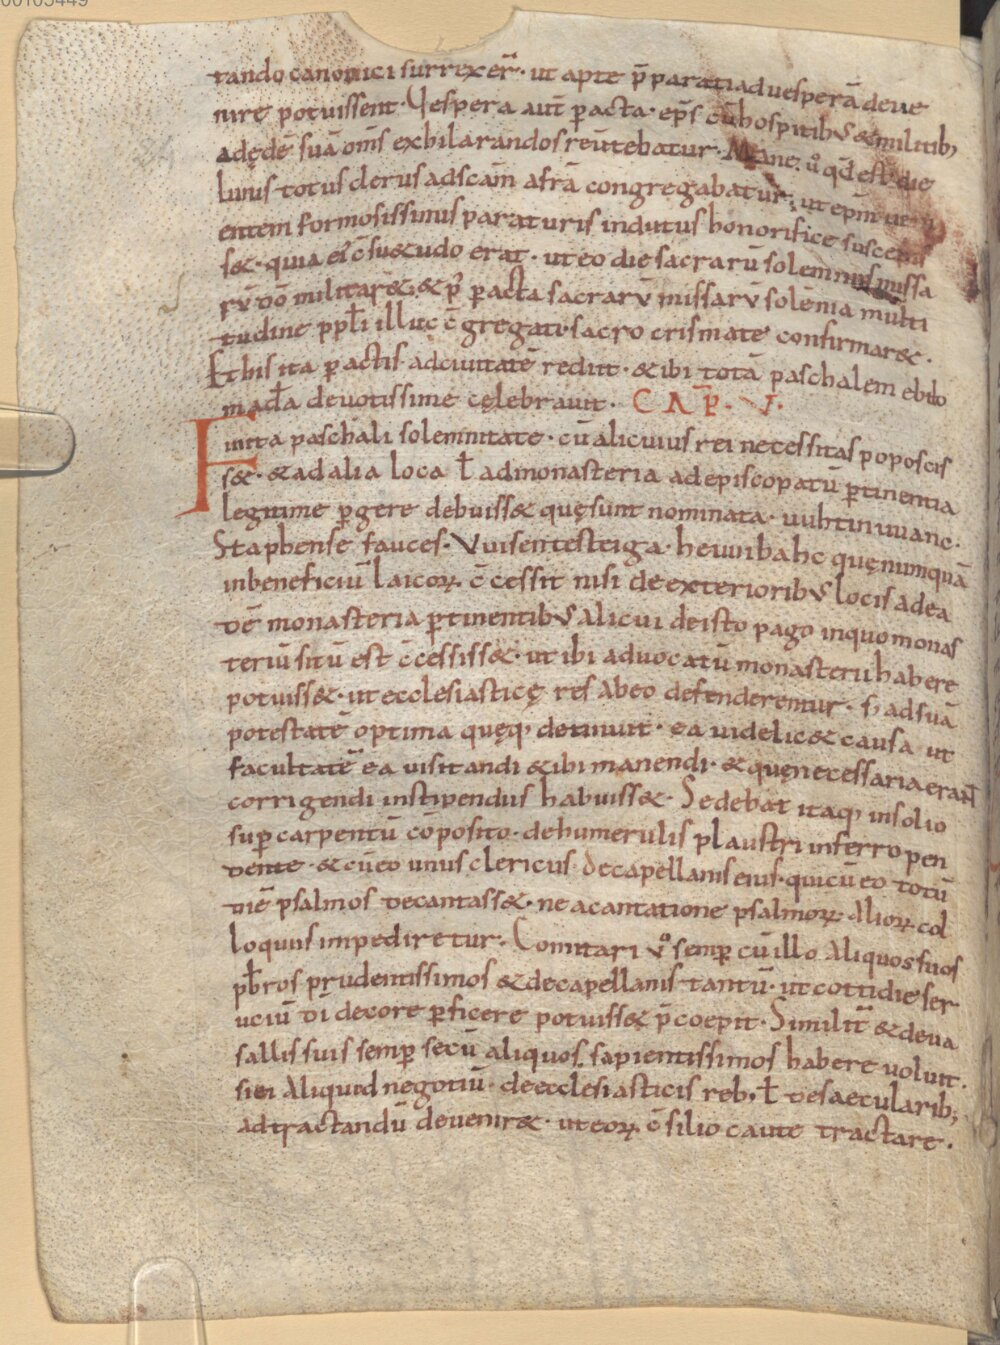 00105449
tando canonici surrexer̄· ut apte p̄parati ad vesperā deue
nire potuissent· Vespera aut̄ pacta· ep̄s cū hospitibus & militib;
ad ędē suā om̄s exhilarandos reūtebatur· Mane ů qd̄ est die
lunis totus clerus ad sc̄am afrā congregabatur; ut ep̄m
entem formosissimis paraturis indutus honorifice
s&· quia ei c̄su&udo erat· ut eo die sacrarū solemnis missa
rū dō militar&· & p̄ pacta sacrarū missarū solēnia multi
tudine ppl̄i illuc c̄gregati· sacro crismate confirmar&·
Et his ita pactis· ad ciuitatē rediit· & ibi totā paschalem ebdo
mad̄a deuotissime cęlebrauit· CAP̄· V·
Finita paschali solemnitate· cū alicuius rei necessitas poposcis
s&· & ad alia loca ł ad monasteria ad episcopatū ptinentia
legitime pgere debuiss& quę sunt nominata· uuhtinuuanc·
Staphense fauces· Vuisentesteiga· heuuibahc quę numquā
in beneficiū laicoꝝ c̄cessit nisi de exterioribus locis ad ea
dē monasteria ptinentibus alicui de isto pago in quo monas
teriū sitū est c̄cessiss&· ut ibi advocatū monasterii habere
potuiss&· ut ecclesiasticę res ab eo defenderentur· s; ad suā
potestatē optima quęq; detinuit· ea uidelic& causa ut
facultatē ea visitandi & ibi manendi· & quę necessaria eran̄t
corrigendi in stipendiis habuiss&· Sedebat itaq; in solio
sup carpentū cōposito· de humerulis plaustri in ferro pen
dente· & cū eo unus clericus de capellanis eius· qui cū eo totū
diē psalmos decantass&· ne a cantatione psalmoꝝ alioꝝ col
loquiis impediretur· Comitari ů semp cū illo aliquos suos
pb̄ros prudentissimos & de capellanis tantū· ut cottidie ser
uciū dī decore pficere potuiss& p̄coepit· Similit̄ & de ua
sallis suis semp secū aliquos sapientissimos habere uoluit·
si ei aliquid negotiū· de ecclesiasticis reb; ł de saecularib;
ad tractandū deuenir&· ut eoꝝ c̄silio caute tractare·